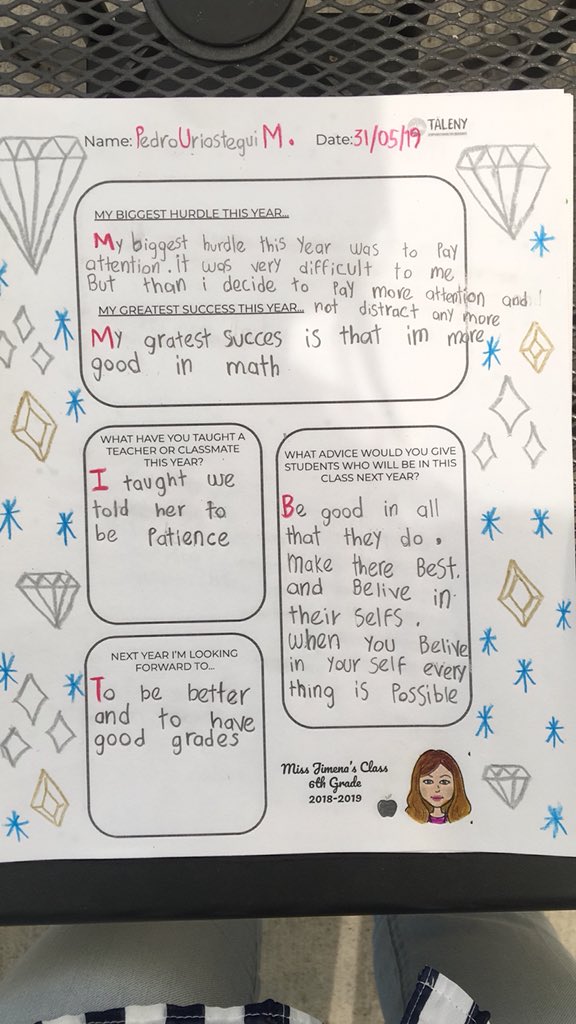 Name: Pedro Uriostegui M. Date: 31/05/19
TALENY
MY BIGGEST HURDLE THIS YEAR...
My biggest hurdle this year was to Pay
attention. it was very difficult to me
But than i decide to Pay more attention and
not distract any more
MY GREATEST SUCCESS THIS YEAR...
My gratest succes is that im more
good in math
WHAT HAVE YOU TAUGHT A
TEACHER OR CLASSMATE
THIS YEAR?
I taught we
told her to
be Patience
WHAT ADVICE WOULD YOU GIVE
STUDENTS WHO WILL BE IN THIS
CLASS NEXT YEAR?
Be good in all
that they do.
Make there Best.
and Belive in
their selfs.
when you Belive
in your self every
thing is Possible
NEXT YEAR I'M LOOKING
FORWARD TO...
To be better
and to have
good grades
Miss Jimena's Class
6th Grade
2018-2019